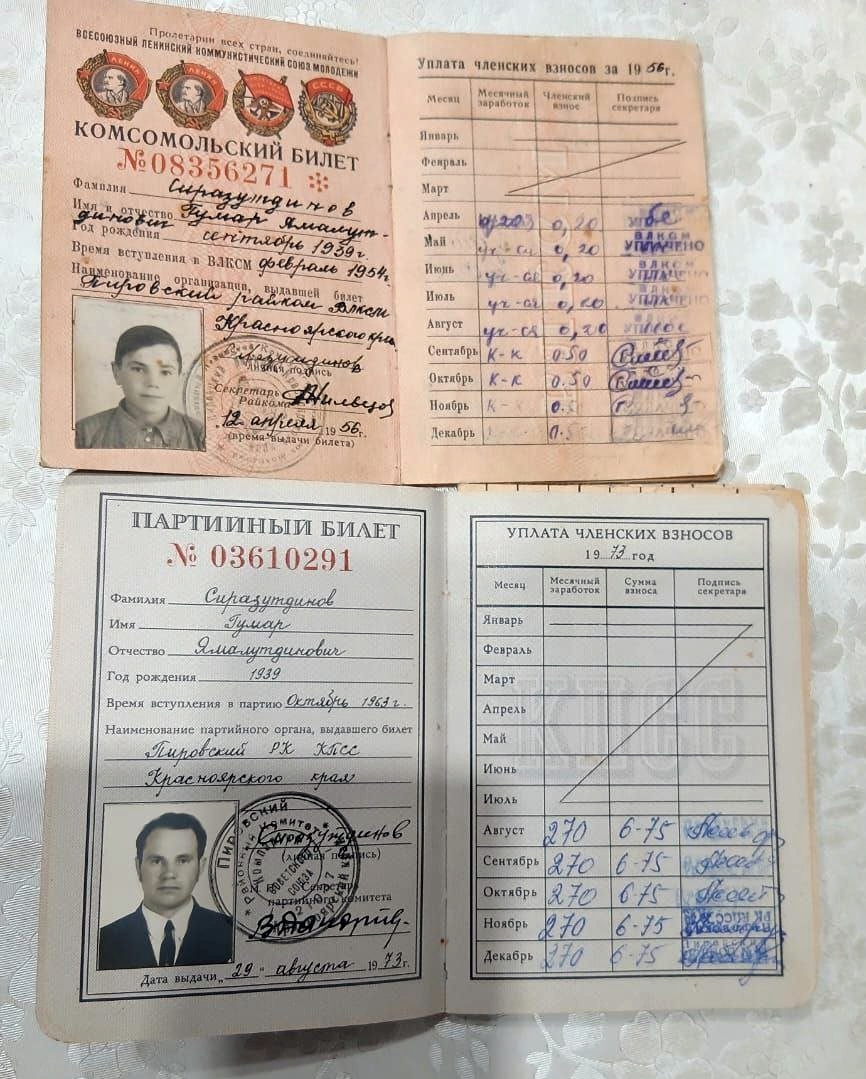 Пролетарии всех стран, соединяйтесь!
ВСЕСОЮЗНЫЙ ЛЕНИНСКИЙ КОММУНИСТИЧЕСКИЙ СОЮЗ МОЛОДЕЖИ
КОМСОМОЛЬСКИЙ БИЛЕТ
№ 08356271
Фамилия Сиразутдинов
Имя и отчество Гумар Ямалут-
динович
Год рождения сентябрь 1939г.
Время вступления в ВЛКСМ февраль 1954г.
Наименование организации, выдавшей билет
Пировский райком ВЛКСМ
Красноярского края
Сиразутдинов
Личная подпись
Секретарь
Райкома
12 апреля 1956г.
(время выдачи билета)
Уплата членских взносов за 1956г.
Месяц Месячный заработок Членский взнос Подпись секретаря
Январь
Февраль
Март
Апрель 0,20
Май уч-ся 0,20 ВЛКСМ УПЛАЧЕНО
Июнь уч-ся 0,20 ВЛКСМ УПЛАЧЕНО
Июль уч-ся 0,20 УПЛАЧЕНО
Август уч-ся 0,20
Сентябрь К-к 0.50
Октябрь К-к 0.50
Ноябрь К- 0.5
Декабрь 0.5
ПАРТИЙНЫЙ БИЛЕТ
№ 03610291
Фамилия Сиразутдинов
Имя Гумар
Отчество Ямалутдинович
Год рождения 1939
Время вступления в партию Октябрь 1963г.
Наименование партийного органа, выдавшего билет
Пировский РК КПСС
Красноярского края
Сиразутдинов
(личная подпись)
М. П. Секретарь
партийного комитета
Дата выдачи „29" августа 1973г.
УПЛАТА ЧЛЕНСКИХ ВЗНОСОВ
1973 год
Месяц Месячный заработок Сумма взноса Подпись секретаря
Январь
Февраль
Март
Апрель
КПСС
Май
Июнь
Июль
Август 270 6-75
Сентябрь 270 6-75
Октябрь 270 6-75
Ноябрь 270 6-75 РК КПСС
Декабрь 270 6-75